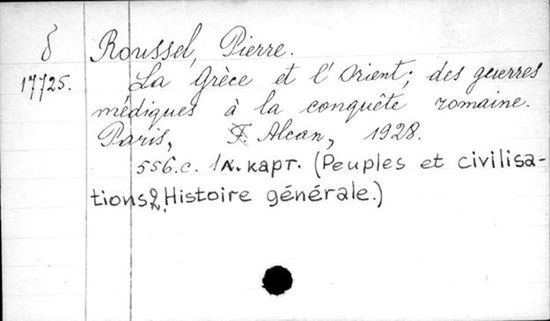 δ Roussel, Pierre.
17725. La Grèce et l'Orient; des guerres
médiques à la conquête romaine.
Paris, F. Alcan, 1928.
556.c. 1л.карт. (Peuples et civilisa-
tions 2, Histoire générale.)